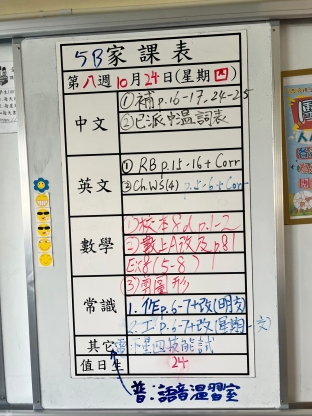 5B家課表
第八週10月24日(星期四)
中文
①補p.16-17, 24-25
②已派中溫詞表
英文
① RB p.15-16+Corr
② Ch.WS(4) p.5-6+Corr
數學
①校本8d p.1-2
②數上A改及p.81
Ex8(5-8)
③剪圖形
常識
1.作p.6-7+改(明交)
2.工p.6-7+改(星期一交)
其它
值日生
24
普:語音溫習室